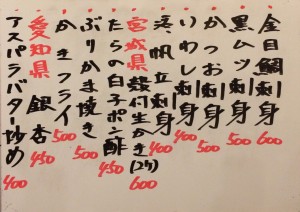 金目鯛刺身 600
黒ムツ刺身 500
かつお刺身 500
いわし刺身 400
活帆立刺身 500
宮城県 殻付生かき(2ヶ) 600
たらの白子ポン酢 450
ぶりかま焼き 500
かきフライ 500
愛知県 銀杏 450
アスパラバター炒め 400